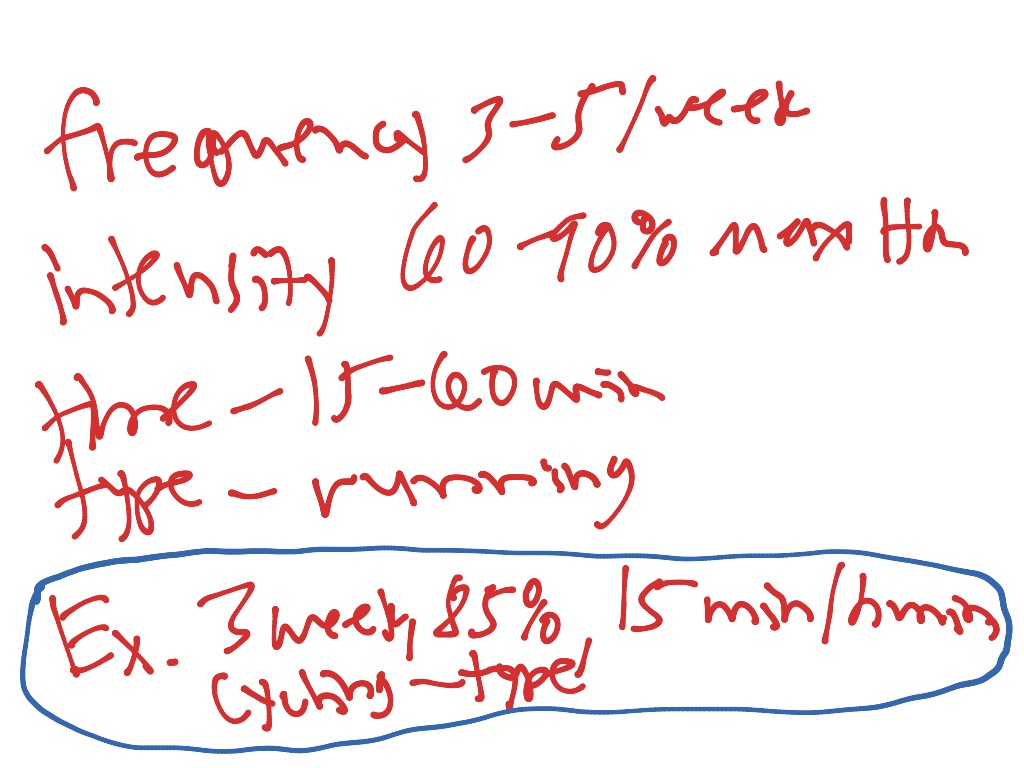 frequency 3-5/week
intensity 60-90% max Hr
time - 15-60 min
type - running
Ex. 3 week, 85%, 15 min/
cycling - type